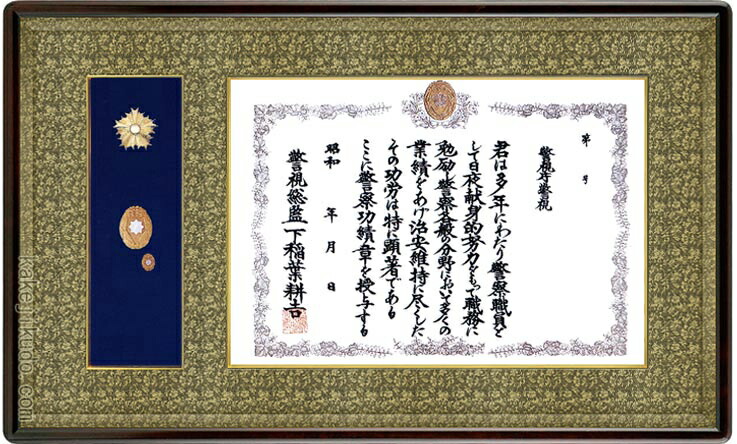 第　号
警視庁警視
君は多年にわたり警察職員と
して日夜献身的努力をもつて職務に
勉励し警察全般の分野において多くの
業績をあげ治安維持に尽くした
その功労は特に顕著である
ここに警察功績章を授与する
昭和　年　月　日
警視総監 下稲葉耕吉